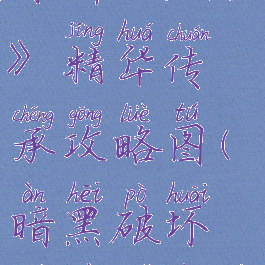 jīng huá chuán
》精华传
chéng gōng lüè tú
承攻略图(
àn hēi pò huài
暗黑破坏